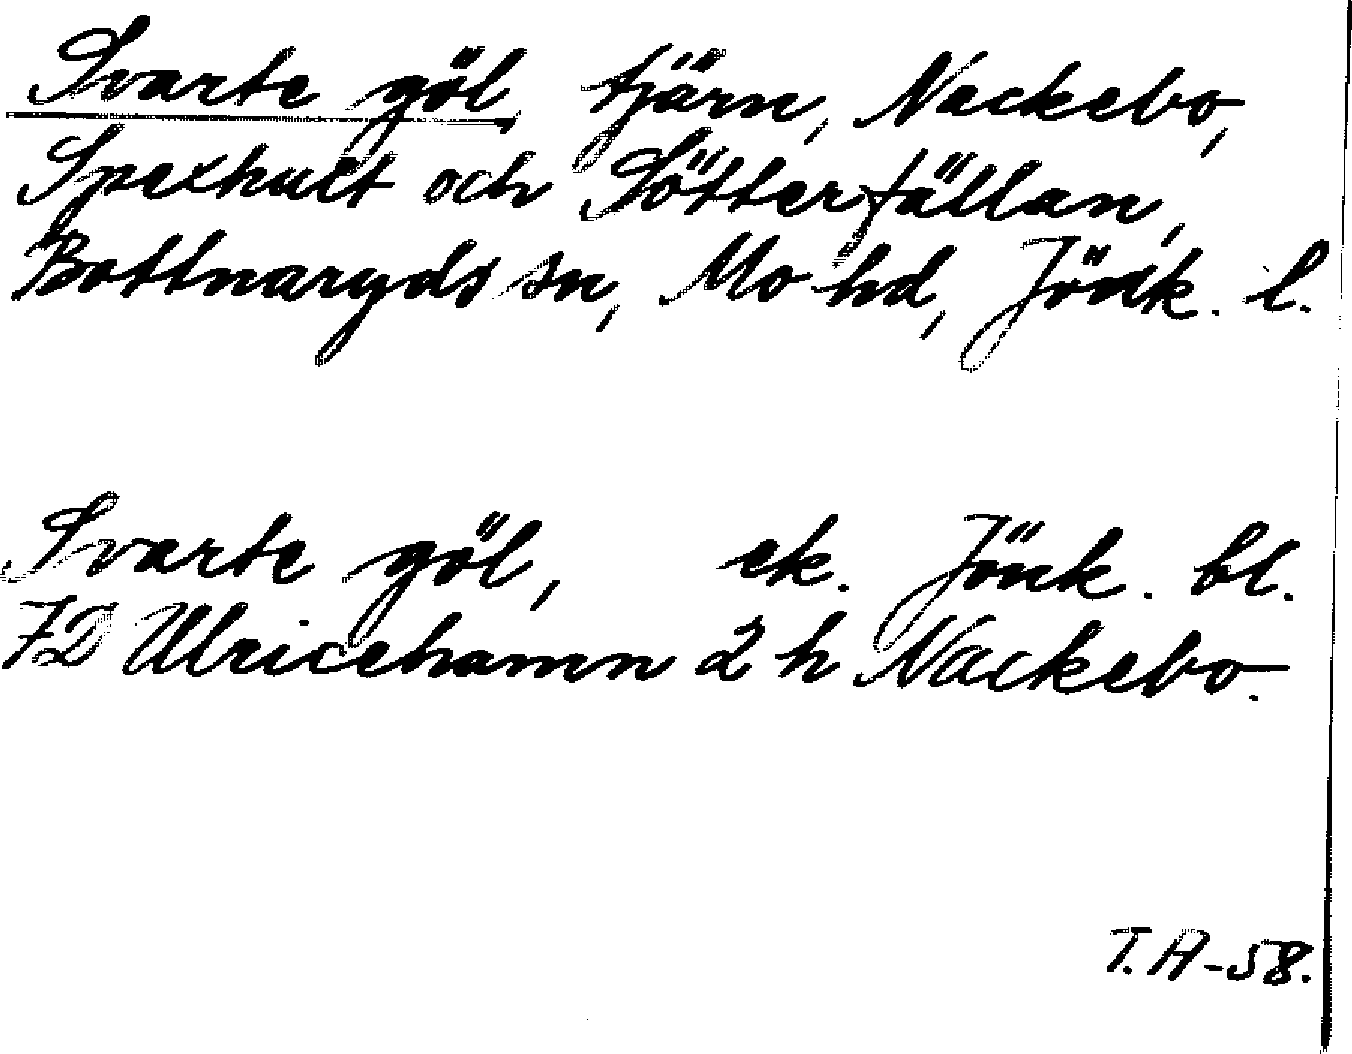 Svarte göl, tjärn, Nackebo,
Spexhult och Sötterfällan,
Bottnaryds sn, Mo hd, Jönk. l.
Svarte göl, ek. Jönk. bl.
7D Ulricehamn 2 h Nackebo.
T.A-58.